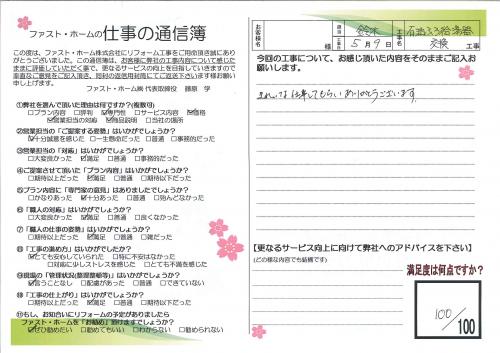 ファスト・ホームの仕事の通信簿
この度は、ファスト・ホーム株式会社にリフォーム工事をご用命頂き誠にありがとうございました。この通信簿は、お客様が弊社の工事内容について感じたままに評価していただく事で、更なるサービスの向上を目指していきますので率直なご意見をご記入頂き、同封の返信用封筒にてご返送下さいます様お願い申し上げます。
ファスト・ホーム㈱ 代表取締役 藤原 学
①弊社を選んで頂いた理由は何ですか?(複数可)
□プラン内容 □評判 ☑専門性 □サービス内容 ☑価格
☑営業担当の対応 ☑商品説明 □当社の場所
②営業担当の「ご提案する姿勢」はいかがでしょうか?
☑十分誠意を感じた □一生懸命だった □普通 □事務的だった
③営業担当の「対応」はいかがでしょうか?
□大変良かった ☑満足 □普通 □事務的だった
④ご提案させて頂いた「プラン内容」はいかがでしょうか?
□期待以上だった ☑満足 □普通 □期待以下だった
⑤プラン内容に「専門家の意見」はありましたでしょうか?
□かなりあった ☑十分あった □普通 □殆んどなかった
⑥「職人の対応」はいかがでしょうか?
□大変良かった ☑満足 □普通 □良くなかった
⑦「職人の仕事の姿勢」はいかがでしょうか?
□期待以上だった ☑満足 □普通 □雑だった
⑧「工事の進め方」はいかがでしょうか?
☑とても安心していられた □特に不安はなかった
□対応に少しストレスを感じた □とても不満を感じた
⑨現場の「管理状況(整理整頓等)」はいかがでしょうか?
☑言うことなし □配慮があった □普通 □できていない
⑩「工事の仕上がり」はいかがでしょうか?
□期待以上だった ☑満足 □普通 □期待以下だった
⑪もし、お知合いにリフォームの予定がありましたら
ファスト・ホームを「お勧め」頂けますでしょうか?
☑ぜひ勧めたい □勧めてもいい □わからない □勧められない
お客様名 様
担当 鈴木
工事日 5月9日
工事名 石油ふろ給湯器交換 工事
今回の工事について、お感じ頂いた内容をそのままご記入お願いします。
きれいな仕事してもらい ありがとうございます。
【更なるサービス向上に向けて弊社へのアドバイスを下さい】
(どの様な内容でも結構です)
満足度は何点ですか?
100/100